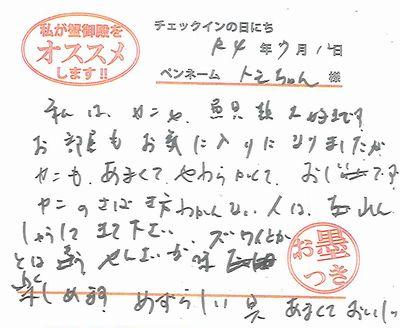 私が蟹御殿を
オススメ
します!!
チェックインの日にち
R4年7月1日
ペンネーム トミちゃん 様
私は、カニや、魚貝類大好きです
お部屋もお気に入りになりましたが
カニも、あまくて、やわらかくて、おいしです
カニのさばき方わかんない人は、
して来て下さい ズワイとか
とは違う せんさいが味
楽しめます めずらしい貝 あまくておいしい
お墨つき